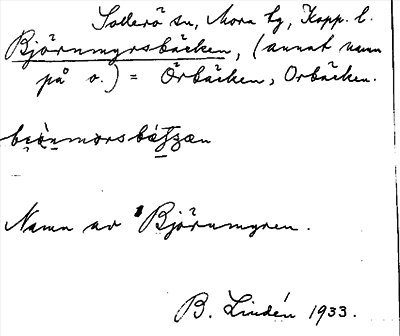 Sollerö sn, Mora tg, Kopp. l.
Björnmyrsbäcken, (annat namn
på o.) = Örbäcken, Orbäcken.
Namn av Björnmyren.
B. Lindén 1933.